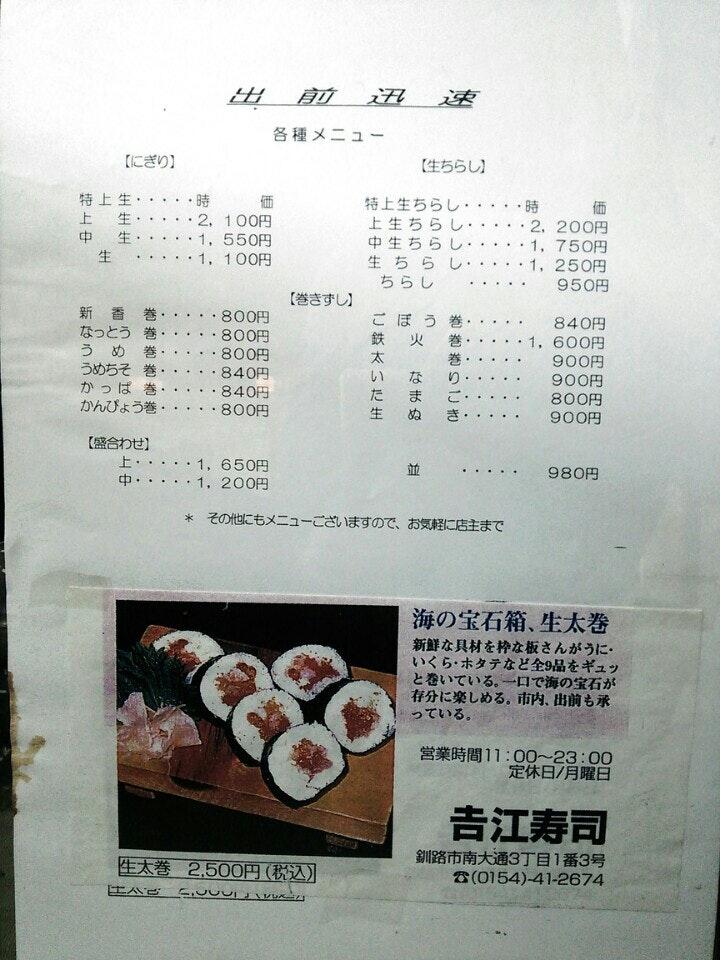 出前迅速
各種メニュー
【にぎり】
特上生・・・・・時 価
上 生・・・・・2,100円
中 生・・・・・1,550円
生 ・・・・・1,100円
【生ちらし】
特上生ちらし・・・・・時 価
上生ちらし・・・・・2,200円
中生ちらし・・・・・1,750円
生ちらし・・・・・1,250円
ちらし ・・・・・ 950円
【巻きずし】
新香巻・・・・・800円
なっとう巻・・・・・800円
うめ巻・・・・・800円
うめちそ巻・・・・・840円
かっぱ巻・・・・・840円
かんぴょう巻・・・・・800円
ごぼう巻・・・・・ 840円
鉄火巻・・・・・1,600円
太巻・・・・・ 900円
いなり・・・・・ 900円
たまご・・・・・ 800円
生ぬき・・・・・ 900円
【盛合わせ】
上・・・・・1,650円
中・・・・・1,200円
並 ・・・・・ 980円
* その他にもメニューございますので、お気軽に店主まで
海の宝石箱、生太巻
新鮮な具材を粋な板さんがうに・
いくら・ホタテなど全9品をギュッ
と巻いている。一口で海の宝石が
存分に楽しめる。市内、出前も承
っている。
営業時間11:00〜23:00
定休日/月曜日
𠮷江寿司
釧路市南大通3丁目1番3号
☎(0154)-41-2674
生太巻 2,500円(税込)
生太巻 2,500円(税込)